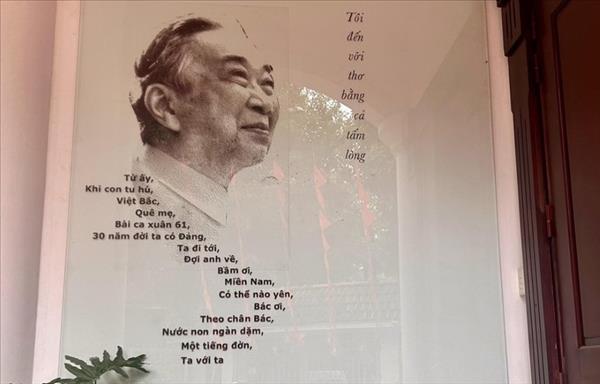 Tôi
đến
với
thơ
bằng
cả
tấm
lòng
Từ ấy,
Khi con tu hú,
Việt Bắc,
Quê mẹ,
Bài ca xuân 61,
30 năm đời ta có Đảng,
Ta đi tới,
Đợi anh về,
Bầm ơi,
Miền Nam,
Có thể nào yên,
Bác ơi,
Theo chân Bác,
Nước non ngàn dặm,
Một tiếng đờn,
Ta với ta